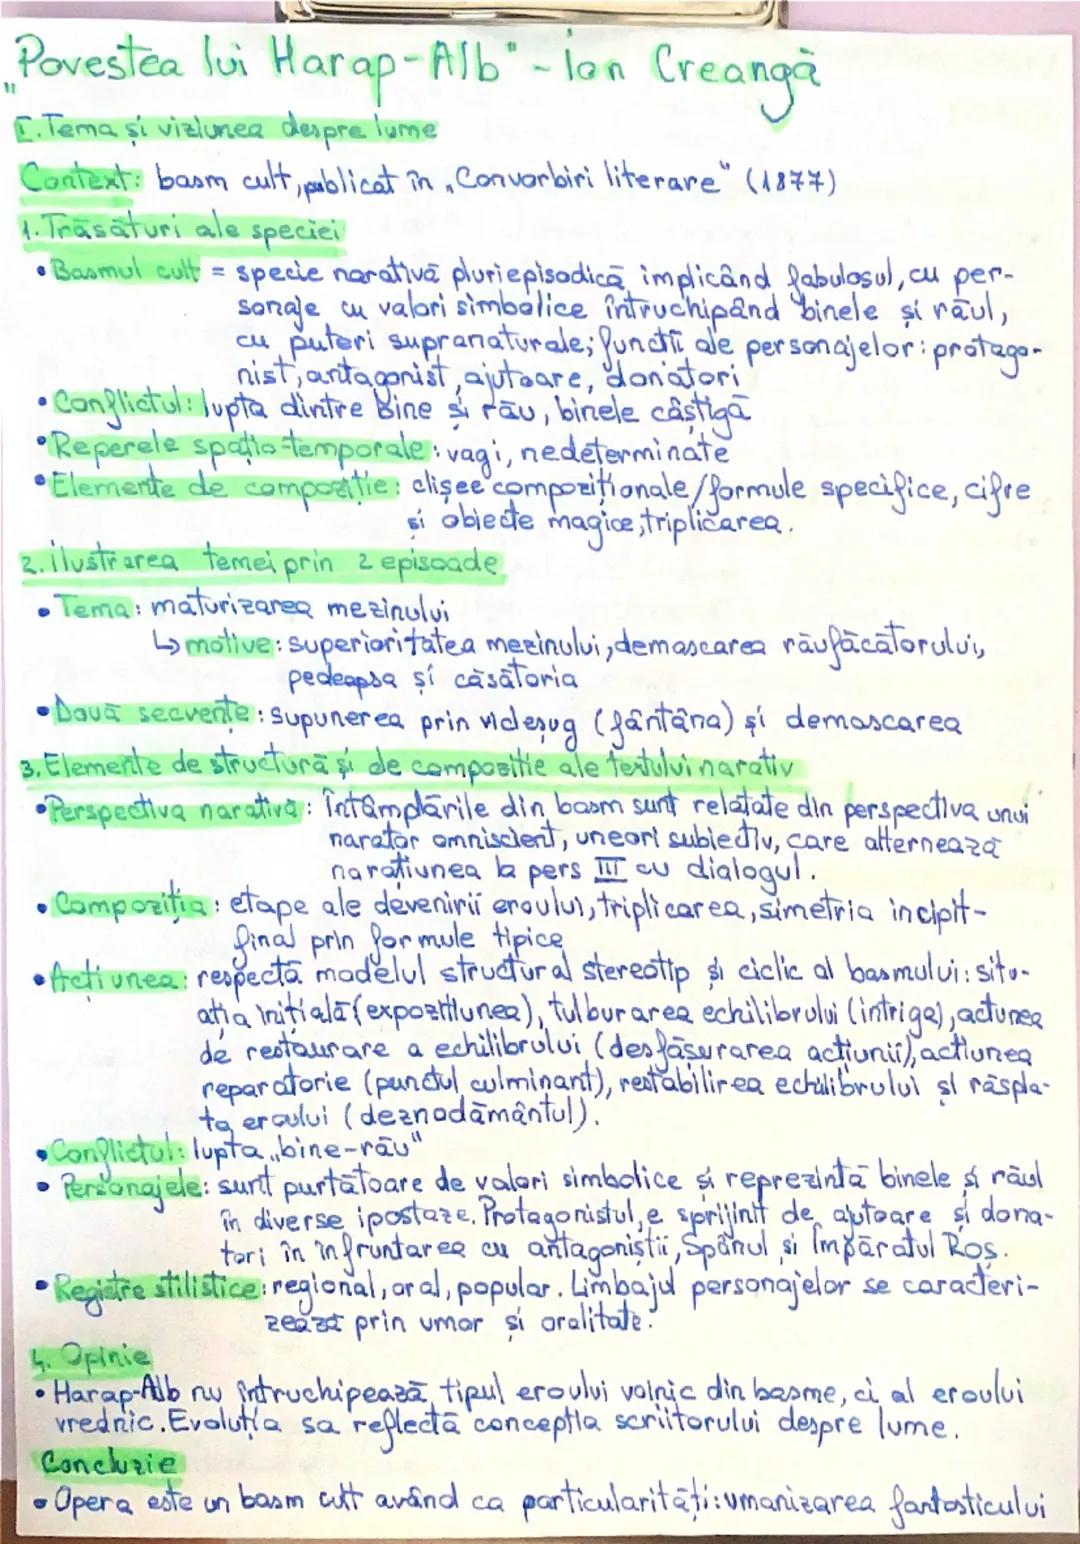 „Povestea lui Harap-Alb" - Ion Creangă
I. Tema și viziunea despre lume
Context: basm cult, publicat în „Convorbiri literare" (1877)
1. Trăsături ale speciei
• Basmul cult = specie narativă pluriepisodică implicând fabulosul, cu per-
sonaje cu valori simbolice întruchipând binele și răul,
cu puteri supranaturale; funcții ale personajelor: protago-
nist, antagonist, ajutoare, donatori
• Conflictul: lupta dintre bine și rău, binele câștigă
• Reperele spațio-temporale: vagi, nedeterminate
• Elemente de compoziție: clișee compoziționale/formule specifice, cifre
și obiecte magice, triplicarea.
2. Ilustrarea temei prin 2 episoade
• Tema: maturizarea mezinului
↳ motive: superioritatea mezinului, demascarea răufăcătorului,
pedeapsa și căsătoria
• Două secvențe: supunerea prin vicleșug (fântâna) și demascarea
3. Elemente de structură și de compoziție ale textului narativ
• Perspectiva narativă: întâmplările din basm sunt relatate din perspectiva unui
narator omniscient, uneori subiectiv, care alternează
narațiunea la pers III cu dialogul.
• Compoziția: etape ale devenirii eroului, triplicarea, simetria incipit-
final prin formule tipice
• Acțiunea: respectă modelul structural stereotip și ciclic al basmului: situ-
ația inițială (expozițiunea), tulburarea echilibrului (intriga), acțiunea
de restaurare a echilibrului (desfășurarea acțiunii), acțiunea
reparatorie (punctul culminant), restabilirea echilibrului și răspla-
ta eroului (deznodământul).
• Conflictul: lupta „bine-rău"
• Personajele: sunt purtătoare de valori simbolice și reprezintă binele și răul
în diverse ipostaze. Protagonistul, e sprijinit de ajutoare și dona-
tori în înfruntarea cu antagoniștii, Spânul și Împăratul Roș.
• Registre stilistice: regional, oral, popular. Limbajul personajelor se caracteri-
zează prin umor și oralitate.
4. Opinie
• Harap-Alb nu întruchipează tipul eroului voinic din basme, ci al eroului
vrednic. Evoluția sa reflectă concepția scriitorului despre lume.
Concluzie
• Opera este un basm cult având ca particularități: umanizarea fantasticului